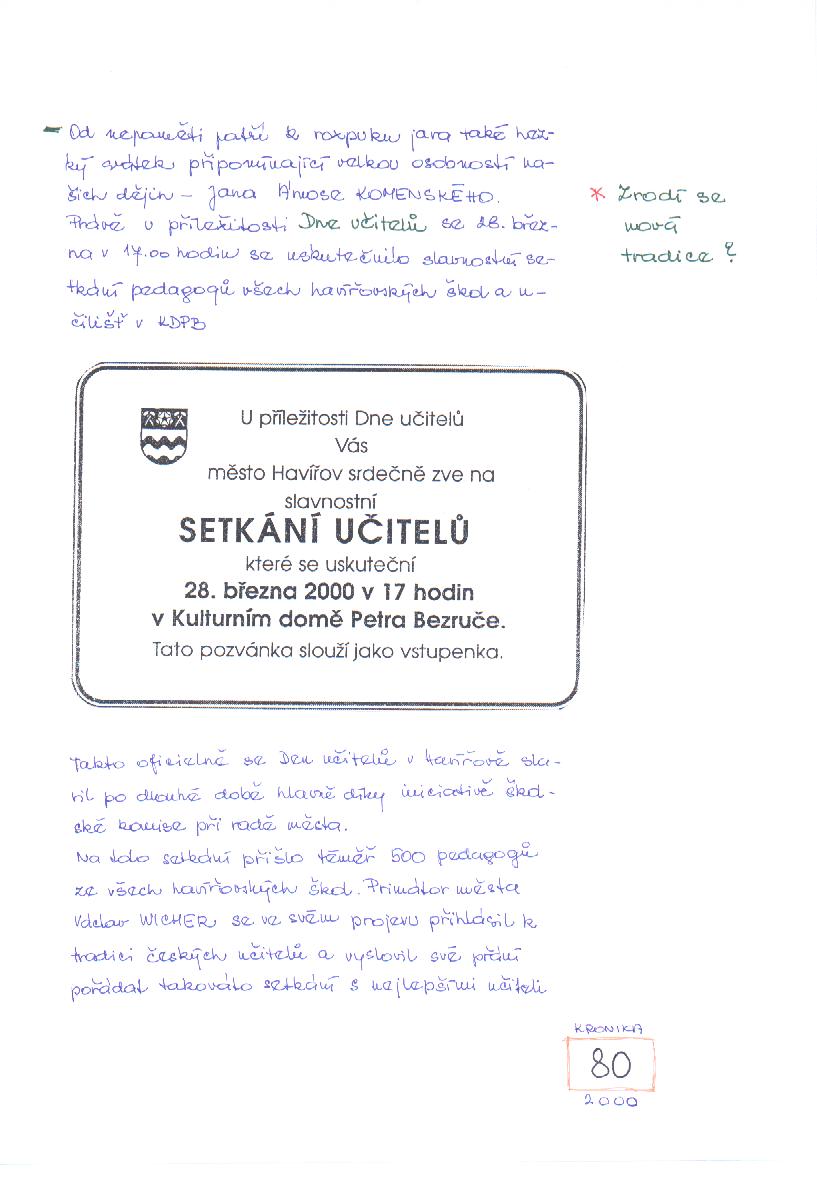 – Od nepaměti patří k rozpuku jara také hez-
ký svátek připomínající velkou osobností na-
šich dějin – Jana Ámose KOMENSKÉHO.
Právě u příležitosti Dne učitelů se 28. břez-
na v 17.00 hodin se uskutečnilo slavnostní se-
tkání pedagogů všech havířovských škol a u-
čilišť v KDPB
* Zrodí se
nová
tradice?
U příležitosti Dne učitelů
Vás
město Havířov srdečně zve na
slavnostní
SETKÁNÍ UČITELŮ
které se uskuteční
28. března 2000 v 17 hodin
v Kulturním domě Petra Bezruče.
Tato pozvánka slouží jako vstupenka.
Takto oficielně se Den učitelů v Havířově sla-
vil po dlouhé době hlavně díky iniciativě škol-
ské komise při radě města.
Na toto setkání přišlo téměř 500 pedagogů
ze všech havířovských škol. Primátor města
Václav WICHER se ve svém projevu přihlásil k
tradici českých učitelů a vyslovil své přání
pořádat takováto setkání s nejlepšími učiteli
KRONIKA
80
2000